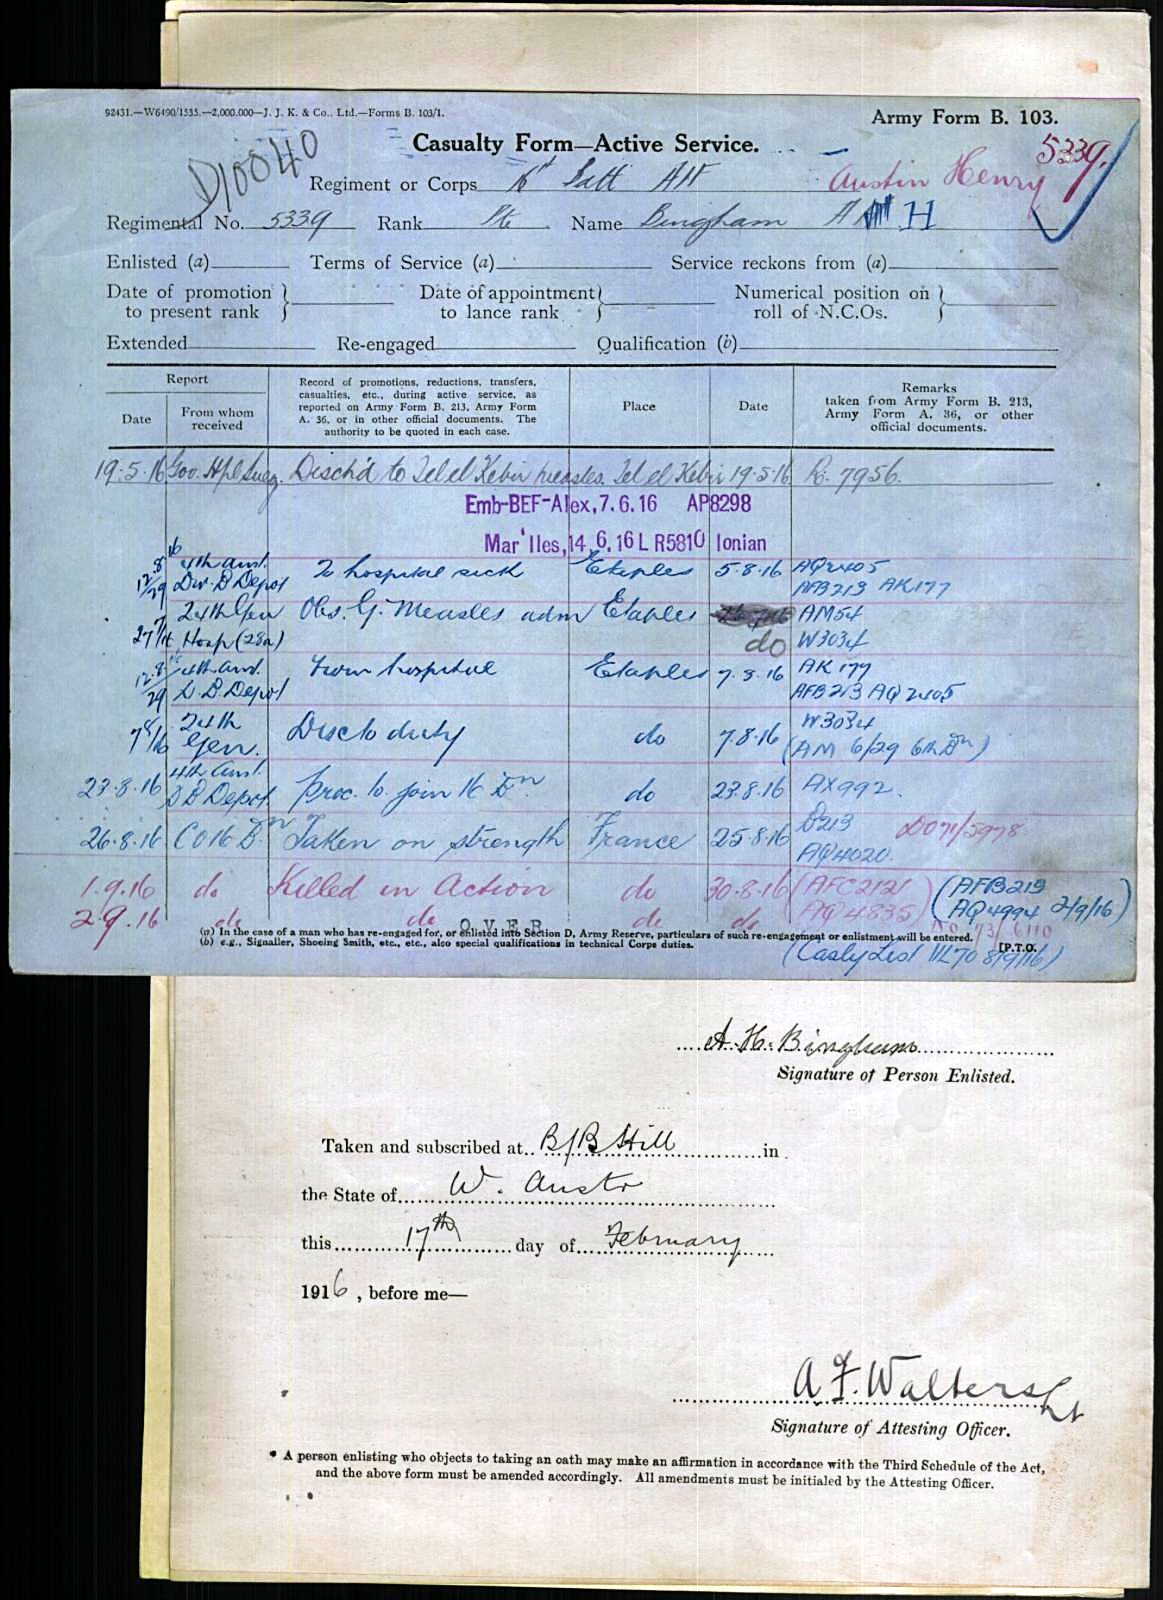 92431.—W6490/1535.—2,000,000—J. J. K. & Co., Ltd.—Forms B. 103/1.
Army Form B. 103.
Casualty Form—Active Service.
D10040
5339.
Regiment or Corps 16th Batt AIF
Austin Henry
Regimental No. 5339 Rank Pte Name Bingham A H
Enlisted (a) Terms of Service (a) Service reckons from (a)
Date of promotion to present rank } Date of appointment to lance rank } Numerical position on roll of N.C.Os. }
Extended Re-engaged Qualification (b)
Report
Date
From whom received
Record of promotions, reductions, transfers, casualties, etc., during active service, as reported on Army Form B. 213, Army Form A. 36, or in other official documents. The authority to be quoted in each case.
Place
Date
Remarks taken from Army Form B. 213, Army Form A. 36, or other official documents.
19.5.16 Gov. Hpl Suez. Disch'd to Tel el Kebir measles. Tel el Kebir 19.5.16 R. 7956.
Emb-BEF-Alex, 7.6.16 AP8298
Mar'lles, 14 6. 16 L R5810 Ionian
12.8.16 4th Aust. To hospital sick Etaples 5.8.16 AQ2405
29 Div. B Depot AFB213 AK177
24th Gen Obs. G. Measles adm Etaples AM54
27/7/16 Hosp (28a) do W3034
12.8.16 4th Aust. From hospital Etaples 7.8.16 AK 177
29 D. B. Depot AFB213 AQ 2405
7/8/16 24th Gen. Disc to duty do 7.8.16 W3034
(AM 6/29 6th Dn)
23.8.16 4th Aust. D B Depot. Proc. to join 16 Bn. do 23.8.16 AX992.
26.8.16 CO 16 Bn Taken on strength France 25.8.16 B213 DO71/5978
AQ4020.
1.9.16 do Killed in Action do 30.8.16 (AFC2121) (AFB213
2.9.16 do do do do AQ4835) AQ4994 2/9/16)
OVER
DO 73/6110
(a) In the case of a man who has re-engaged for, or enlisted into Section D, Army Reserve, particulars of such re-engagement or enlistment will be entered.
(b) e.g., Signaller, Shoeing Smith, etc., etc., also special qualifications in technical Corps duties.
[P.T.O.
(Casly List WL70 8/9/16)
A. H. Bingham
Signature of Person Enlisted.
Taken and subscribed at B/B Hill in
the State of W. Austr
this 17th day of February
1916, before me—
A. F. Walters Lt
Signature of Attesting Officer.
* A person enlisting who objects to taking an oath may make an affirmation in accordance with the Third Schedule of the Act,
and the above form must be amended accordingly. All amendments must be initialed by the Attesting Officer.